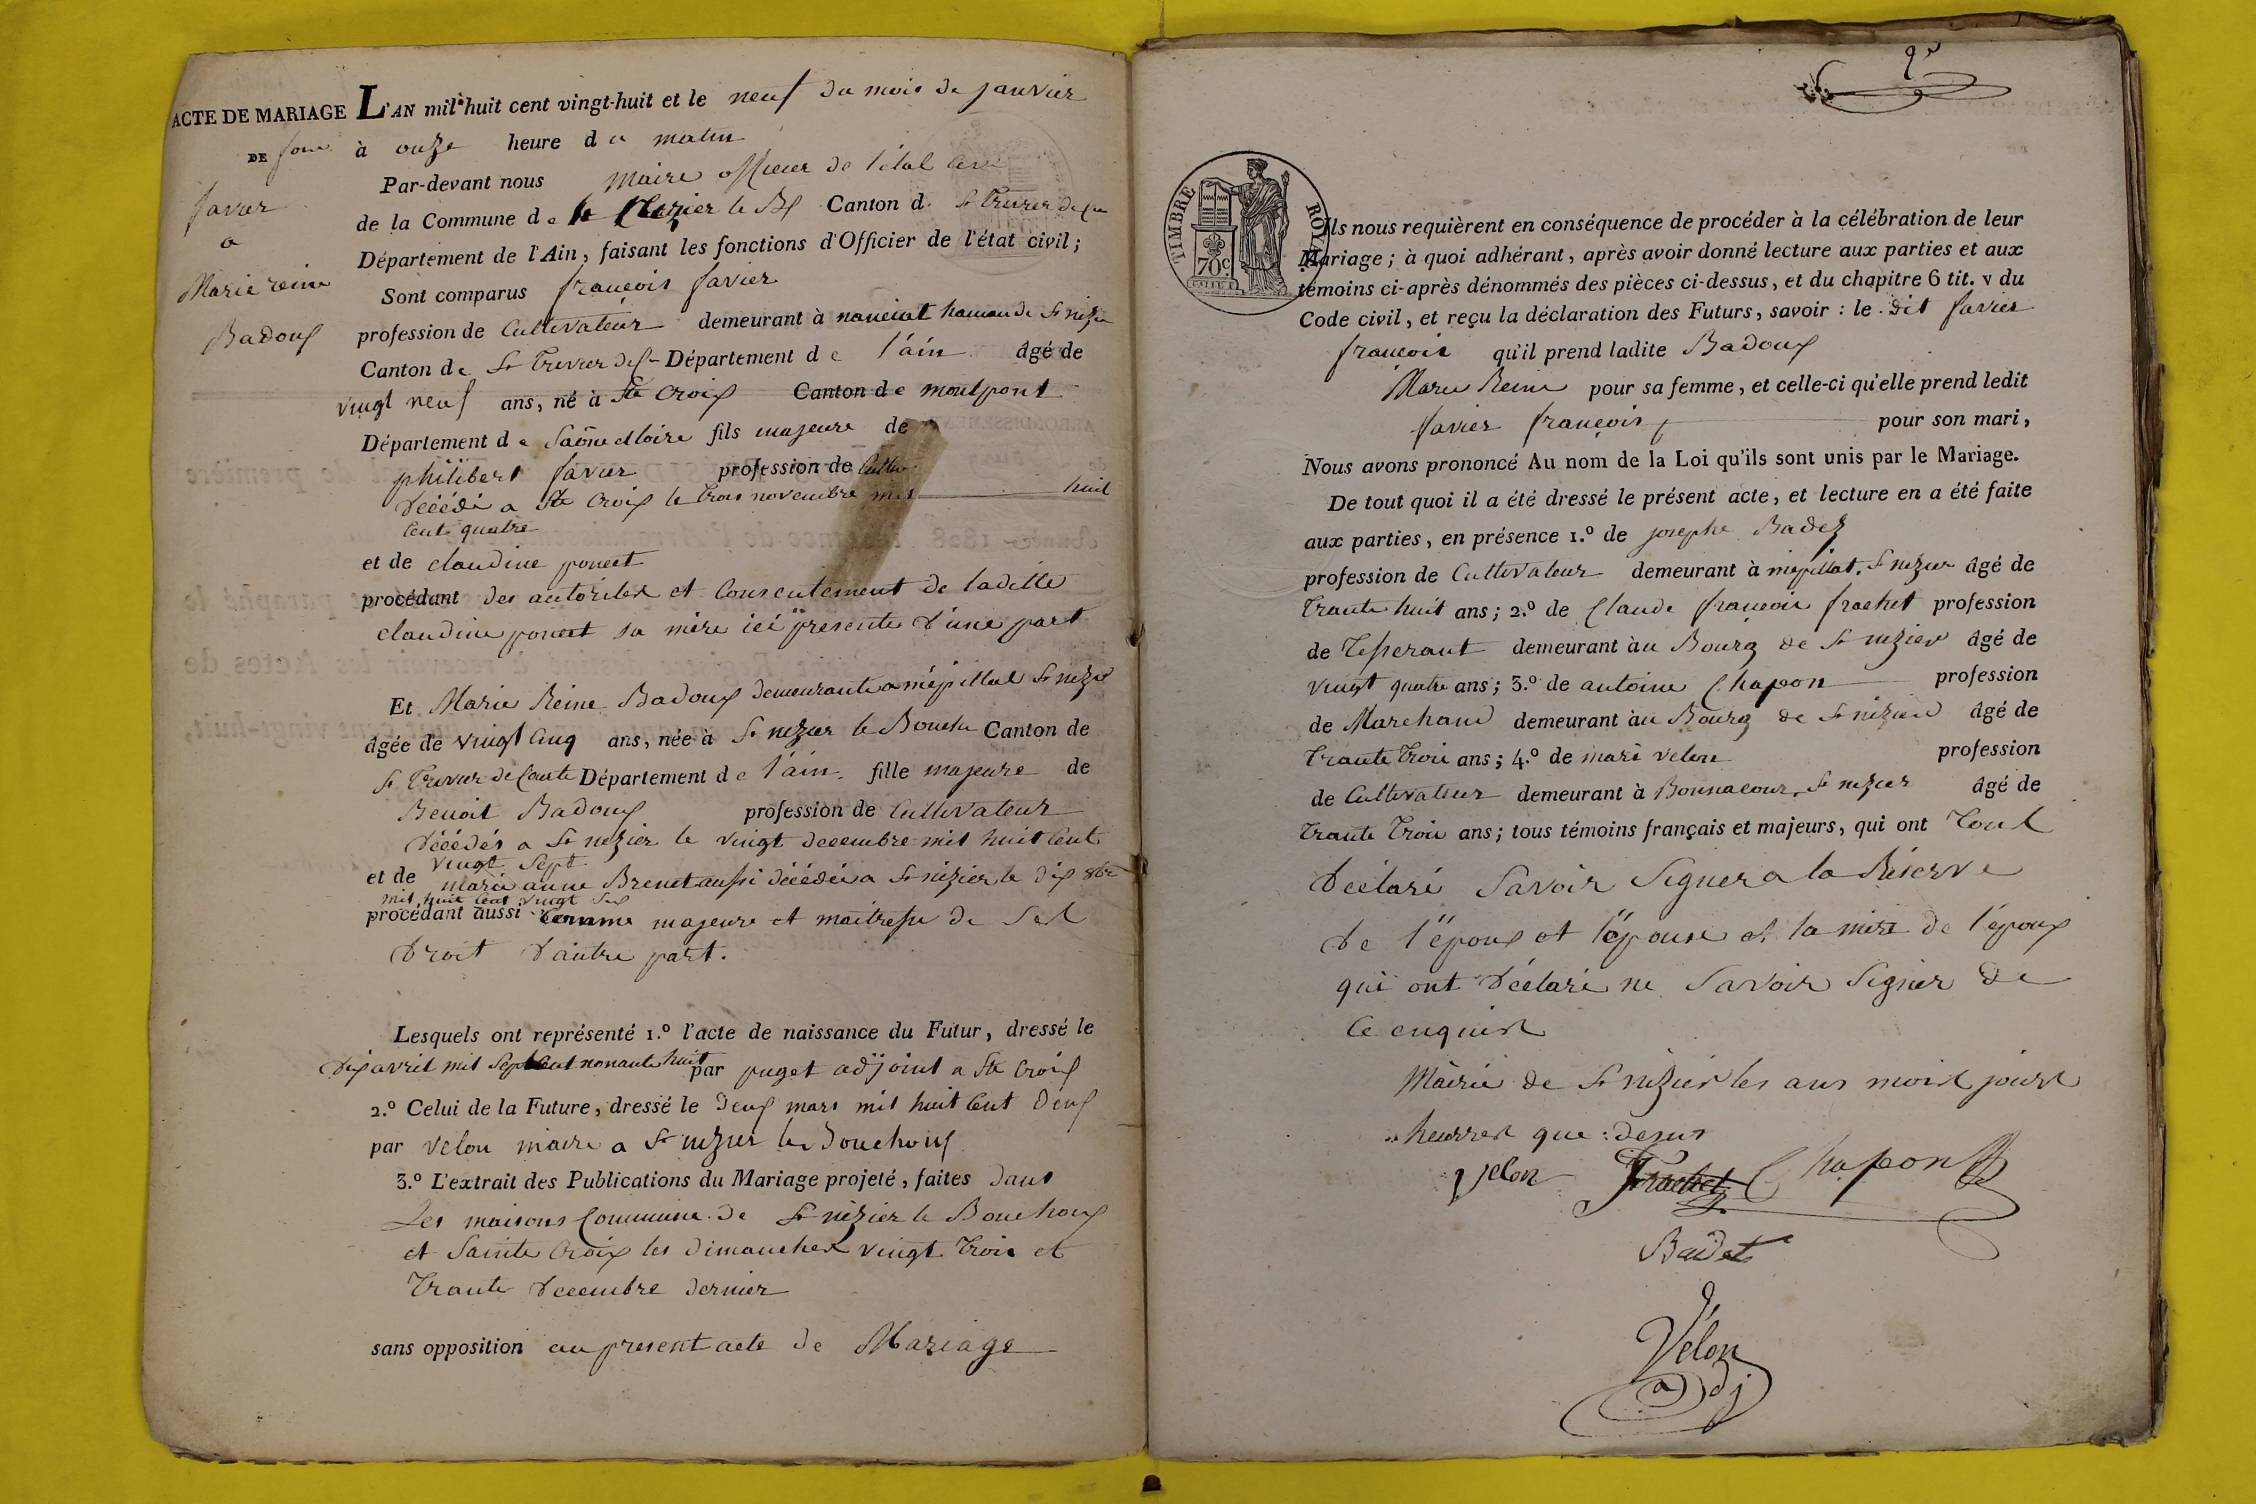 ACTE DE MARIAGE
DE
favier
a
Marie reine
Badoux
L'AN mil huit cent vingt-huit et le neuf du mois de janvier
à onze heure du matin
Par-devant nous Maire officier de l'état
de la Commune de Canton d. St Trivier de
Département de l'Ain, faisant les fonctions d'Officier de l'état civil;
Sont comparus françois favier
profession de Cultivateur demeurant à hameau de St nizier
Canton de St Trivier de Département de l'ain âgé de
vingt neuf ans, né à Ste Croix Canton de montpont
Département de Saône et loire fils majeure de
philibert favier profession de
décédé a Ste Croix le trois novembre mil huit
Cent quatre
et de claudine poncet
procédant des autorites et Consentement de laditte
claudine poncet sa mère ici presente d'une part
Et Marie Reine Badoux demeurante a mépillat St nizier
âgée de vingt Cinq ans, née à St nizier le Bouchu Canton de
St Trivier de Courte Département de l'ain. fille majeure de
Benoit Badoux profession de Cultivateur
décédés a St nizier le vingt decembre mil huit Cent
vingt sept
et de marie anne Brenet aussi décédée a St nizier le dix 8bre
mil huit Cent vingt
procédant aussi Comme majeure et maitresse de Ses
droit d'autre part.
Lesquels ont représenté 1.º l'acte de naissance du Futur, dressé le
dix avril mil Sept Cent nonante huit par puget adjoint a Ste Croix
2.º Celui de la Future, dressé le deux mars mil huit Cent deux
par Velon maire a St nizier le Bouchoux
3.º L'extrait des Publications du Mariage projeté, faites dans
Les maisons Commune de St nizier le Bouchoux
et Sainte Croix les dimanches vingt trois et
trante decembre dernier
sans opposition au present acte de Mariage
TIMBRE ROYAL
70c.
Ils nous requièrent en conséquence de procéder à la célébration de leur
Mariage; à quoi adhérant, après avoir donné lecture aux parties et aux
témoins ci-après dénommés des pièces ci-dessus, et du chapitre 6 tit. v du
Code civil, et reçu la déclaration des Futurs, savoir: le dit favier
françois qu'il prend ladite Badoux
Marie Reine pour sa femme, et celle-ci qu'elle prend ledit
favier françois pour son mari,
Nous avons prononcé Au nom de la Loi qu'ils sont unis par le Mariage.
De tout quoi il a été dressé le présent acte, et lecture en a été faite
aux parties, en présence 1.º de josephe Badez
profession de Cultivateur demeurant à mépillat, St nizier âgé de
trante huit ans; 2.º de Claude françois frachet profession
de Tesserant demeurant àu Bourg de St nizier âgé de
vingt quatre ans; 3.º de antoine Chapon profession
de Marchand demeurant àu Bourg de St nizier âgé de
trante trois ans; 4.º de marie velon profession
de Cultivateur demeurant à Bonnacour, St nizier âgé de
trante trois ans; tous témoins français et majeurs, qui ont tout
déclaré Savoir Signer a la Réserve
de l'époux et l'épouse et la mère de l'époux
qui ont déclaré ne Savoir Signer de
Ce enquist
Mairie de St nizier les ans mois jours
heurres que: desus
Velon Frachet Chapon
Badet
Vélon
adj